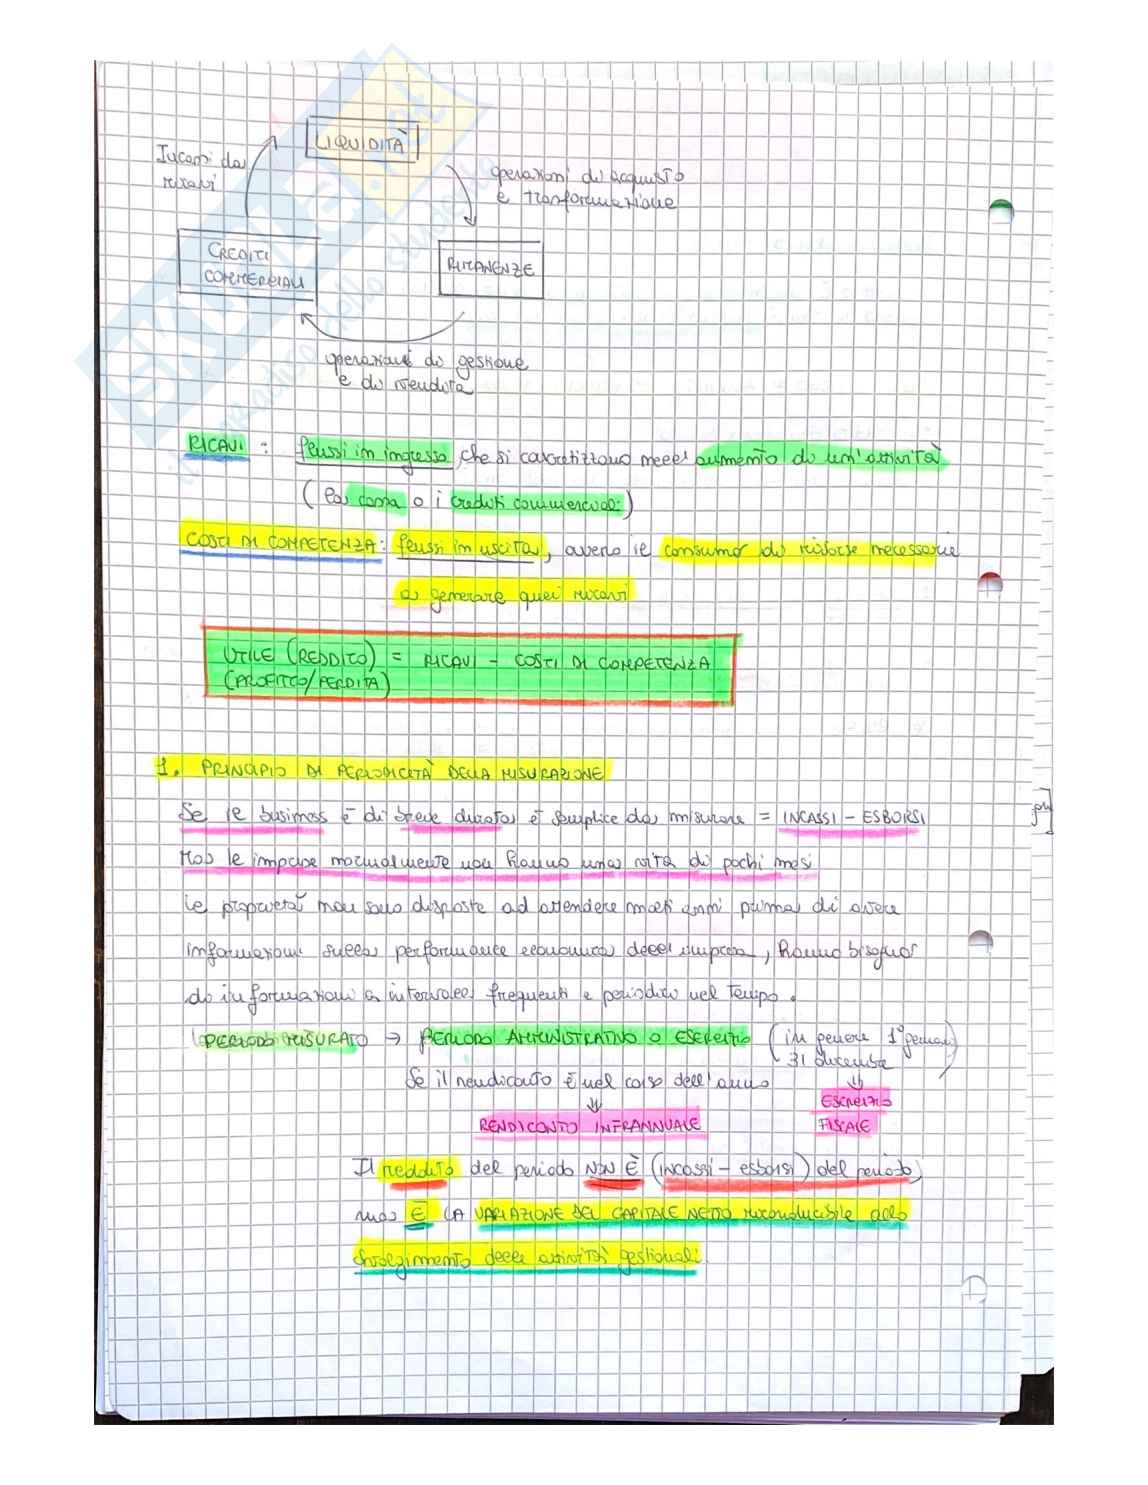 LIQUIDITÀ
Incassi da
ricavi
operazioni di acquisto
e trasformazione
CREDITI
COMMERCIALI
RIMANENZE
operazioni di gestione
e di vendita
RICAVI : flussi in ingresso, che si concretizzano nell'aumento di un'attività
(la cassa o i crediti commerciali)
COSTI DI COMPETENZA: flussi in uscita, ovvero il consumo di risorse necessarie
a generare quei ricavi
UTILE (REDDITO) = RICAVI - COSTI DI COMPETENZA
(PROFITTO/PERDITA)
1. PRINCIPIO DI PERIODICITÀ DELLA MISURAZIONE
Se il business è di breve durata è semplice da misurare = INCASSI - ESBORSI
Ma le imprese normalmente non hanno una vita di pochi mesi
le proprietà non sono disposte ad attendere molti anni prima di avere
informazioni sulla performance economica dell'impresa, hanno bisogno
di informazioni a intervalli frequenti e periodici nel tempo.
PERIODO MISURATO → PERIODO AMMINISTRATIVO O ESERCIZIO (in genere 1° gennaio
31 dicembre)
Se il rendiconto è nel corso dell'anno
ESERCIZIO
FISCALE
RENDICONTO INFRANNUALE
Il reddito del periodo NON È (incassi - esborsi) del periodo,
ma È LA VARIAZIONE DEL CAPITALE NETTO riconducibile allo
svolgimento delle attività gestionali
SKUOLA.net
il paradiso dello studente